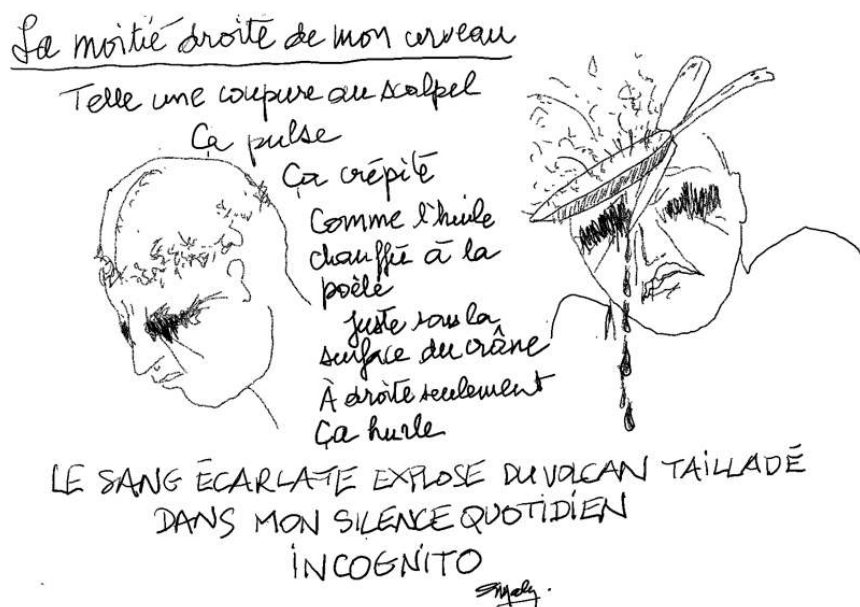 La moitié droite de mon cerveau
Telle une coupure au scalpel
Ça pulse
Ça crépite
Comme l'huile
chauffée à la
poêle
Juste sous la
surface du crâne
À droite seulement
Ça hurle
LE SANG ÉCARLATE EXPLOSE DU VOLCAN TAILLADÉ
DANS MON SILENCE QUOTIDIEN
INCOGNITO